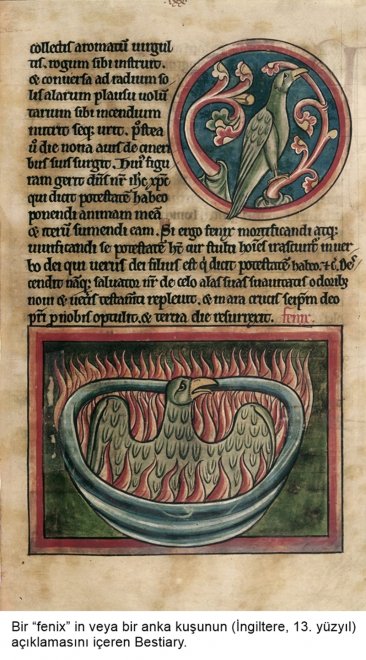 collectis aromatū uirgul
tis. rogum sibi instruit.
& conuersa ad radium so
lis alarum plausu uolū
tarium sibi incendium
nutrit seq; urit. p̄stea
ū die nona auis de cineri
bus suis surgit. Huiꝰ figu
ram gerit dn̄s nr̄ ihc xp̄c
qui dicit potestatē habeo
ponendi animam meā
& iterū sumendi eam. Si ergo fenix mortificandi atq;
uiuificandi se potestatē h̄t cur stulti hoīes irascunt̄ in uer
bo dei qui uerus dei filius est q̇ dicit potestatē habeo. &c. Des
cendit nāq; saluator nr̄ de celo alas suas suauitatis odoribꝫ
noui & ueteris testam̄ti repleuit. & in ara crucis seip̄m deo
pr̄i ꝓ nobis optulit. & tercia die resurrexit. fenix.
Bir “fenix” in veya bir anka kuşunun (İngiltere, 13. yüzyıl)
açıklamasını içeren Bestiary.